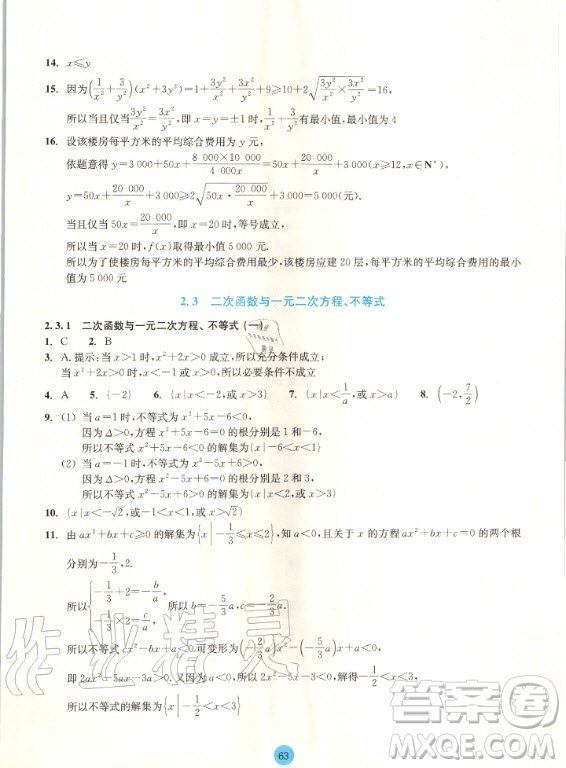 14. x≤y
15. 因为(1/x²+3/y²)(x²+3y²)=1+3y²/x²+3x²/y²+9≥10+2√(3y²/x²×3x²/y²)=16,
所以当且仅当3y²/x²=3x²/y²,即 x=y=±1时,1/x²+3/y²有最小值,最小值为 4
16. 设该楼房每平方米的平均综合费用为 y 元,
依题意得 y=3 000+50x+8 000×10 000/4 000x=50x+20 000/x+3 000(x≥12,x∈N*),
y=50x+20 000/x+3 000≥2√(50x·20 000/x)+3 000=5 000(元).
当且仅当 50x=20 000/x,即 x=20 时,等号成立,
所以当 x=20 时,f(x)取得最小值 5 000 元.
所以为了使楼房每平方米的平均综合费用最少,该楼房应建 20 层,每平方米的平均综合费用的最小值
为 5 000 元
2.3 二次函数与一元二次方程、不等式
2.3.1 二次函数与一元二次方程、不等式(一)
1. C 2. B
3. A.提示:当 x>1 时,x²+2x>0 成立,所以充分条件成立;
当 x²+2x>0 时,x>1 不成立,所以必要条件不成立
4. A 5. {-2} 6. {x|x<-2,或x>3} 7. {x|x<1/a,或x>a} 8. (-2,7/2)
9. (1) 当 a=1 时,不等式为 x²+5x-6<0,
因为 Δ>0,方程 x²+5x-6=0 的根分别是 1 和-6,
所以不等式 x²+5x-6<0 的解集为{x|-6<x<1}
(2) 当 a=-1 时,不等式为 x²-5x+6>0,
因为 Δ>0,方程 x²-5x+6=0 的根分别是 2 和 3,
所以不等式 x²-5x+6>0 的解集为{x|x<2,或 x>3}
10. {x|x<-√2,或-1<x<1,或 x>√2}
11. 由 ax²+bx+c≥0 的解集为{x|-1/3≤x≤2},知 a<0,且关于 x 的方程 ax²+bx+c=0 的两个根
分别为-1/3,2.
所以{-1/3+2=-b/a, -1/3×2=c/a, 所以 b=-5/3a,c=-2/3a.
所以不等式 cx²-bx+a<0 可变形为(-2/3a)x²-(-5/3a)x+a<0,
即 2ax²-5ax-3a>0.又因为 a<0,所以 2x²-5x-3<0,解得-1/2<x<3,
所以所求不等式的解集为{x|-1/2<x<3}
63
作业精灵
答案圈
MXQE.COM